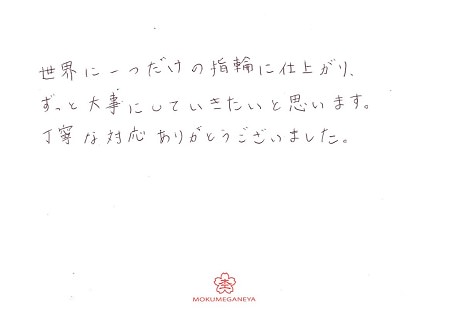 世界に一つだけの指輪に仕上がり、
ずっと大事にしていきたいと思います。
丁寧な対応ありがとうございました。
杢
MOKUMEGANEYA